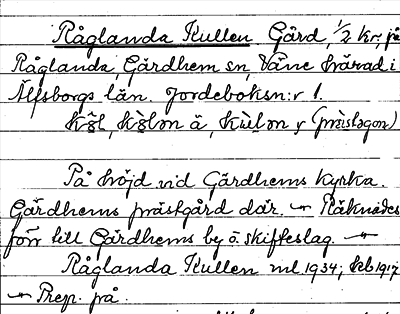 Råglanda Kullen Gård, 1/2 kr, på
Råglanda, Gärdhem sn, Väne härad i
Älfsborgs län. Jordeboksn:r 1.
På höjd vid Gärdhems kyrka.
Gärdhems prästgård där. — Räknades
förr till Gärdhems by o. skifteslag. —
Råglanda Kullen ml 1934; Feb 1917
— Prep. på.